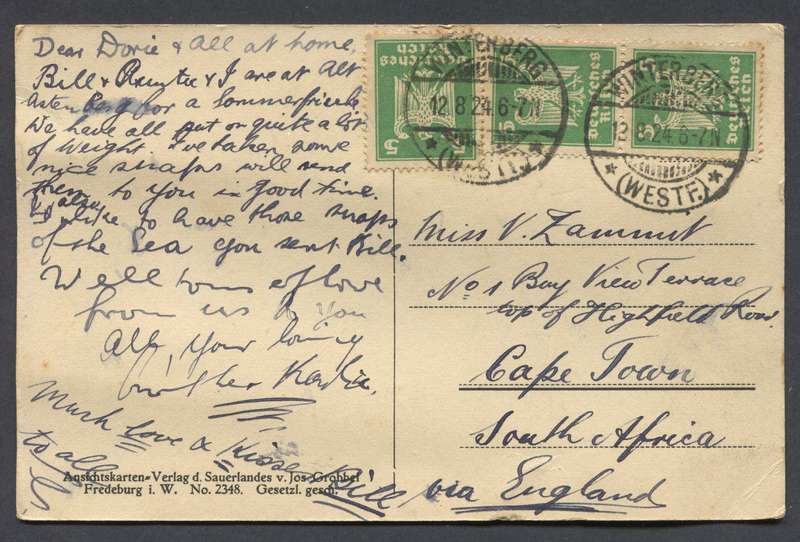 Dear Dorie & All at home,
Bill & & I are at Alt
for a Sommerfrische
We have all put on quite a lot
of weight. I've taken some
nice snaps will send
them to you in good time.
I like to have those snaps
of the Sea you sent Bill.
Well tons of love
from us to you
All, your loving
Much love & Kisses
to all
Bill
Ansichtskarten-Verlag d. Sauerlandes v. Jos. Grobbel
Fredeburg i. W. No. 2348. Gesetzl. gesch.
Deutsches Reich
5
Deutsches
5
Deutsches Reich
5
WINTERBERG
12.8.24.6-7N
(WESTF.)
WINTERBERG
12.8.24.6-7N
(WESTF.)
Miss V. Zammut
No 1 Bay View Terrace
top of Highfield Road.
Cape Town
South Africa
via England